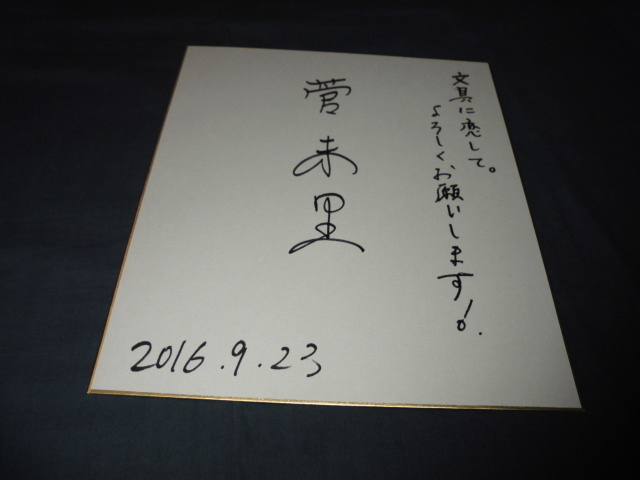 文具に恋して。
よろしくお願いします!
菅未里
2016.9.23